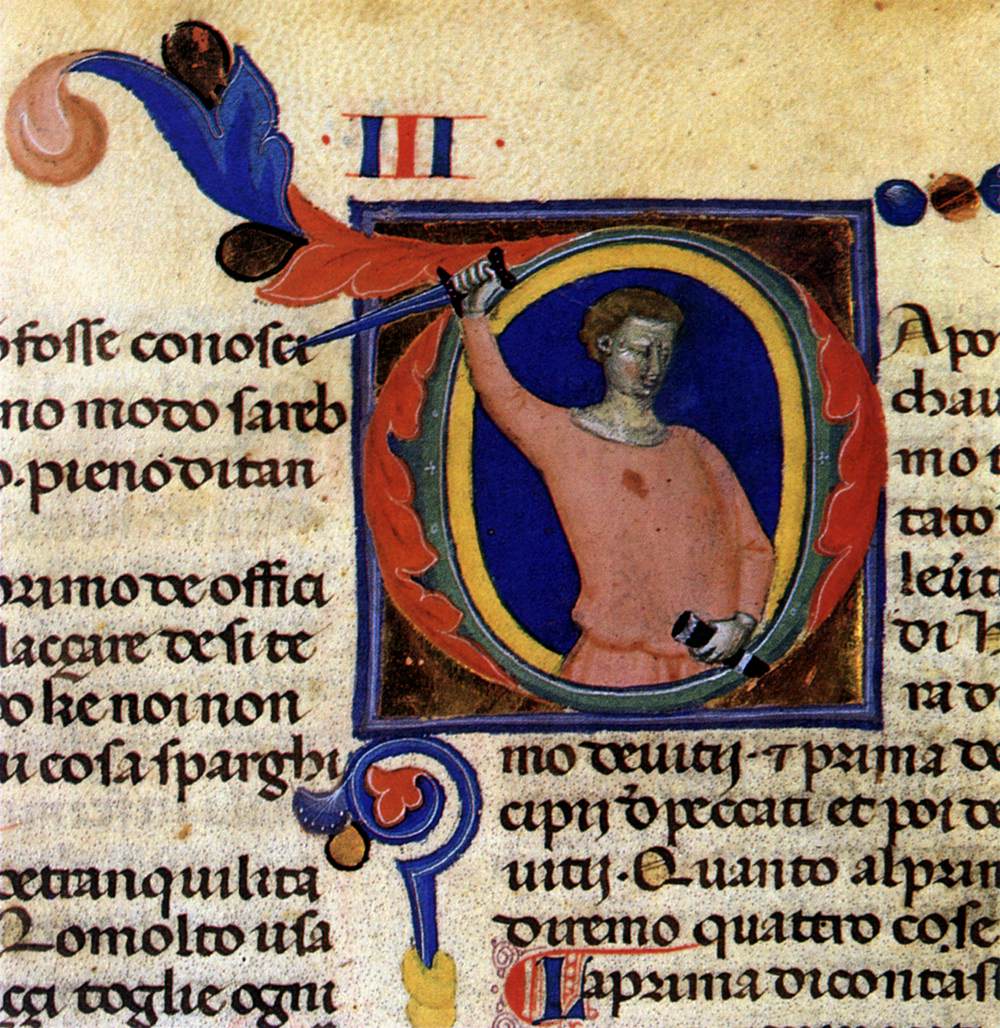 III
fosse conosci
no modo sareb
pieno di tan
primo de offici
laccare de si te
ke noi non
cosa sparghi
tranquilita
o molto usa
toglie ogni
D
Apo
chau
mo
tato
di
ra d
mo de uitij · ⁊ prima de
cipij d peccati et poi de
uitij · Quanto al prim
diremo quattro cose
La prima di contast